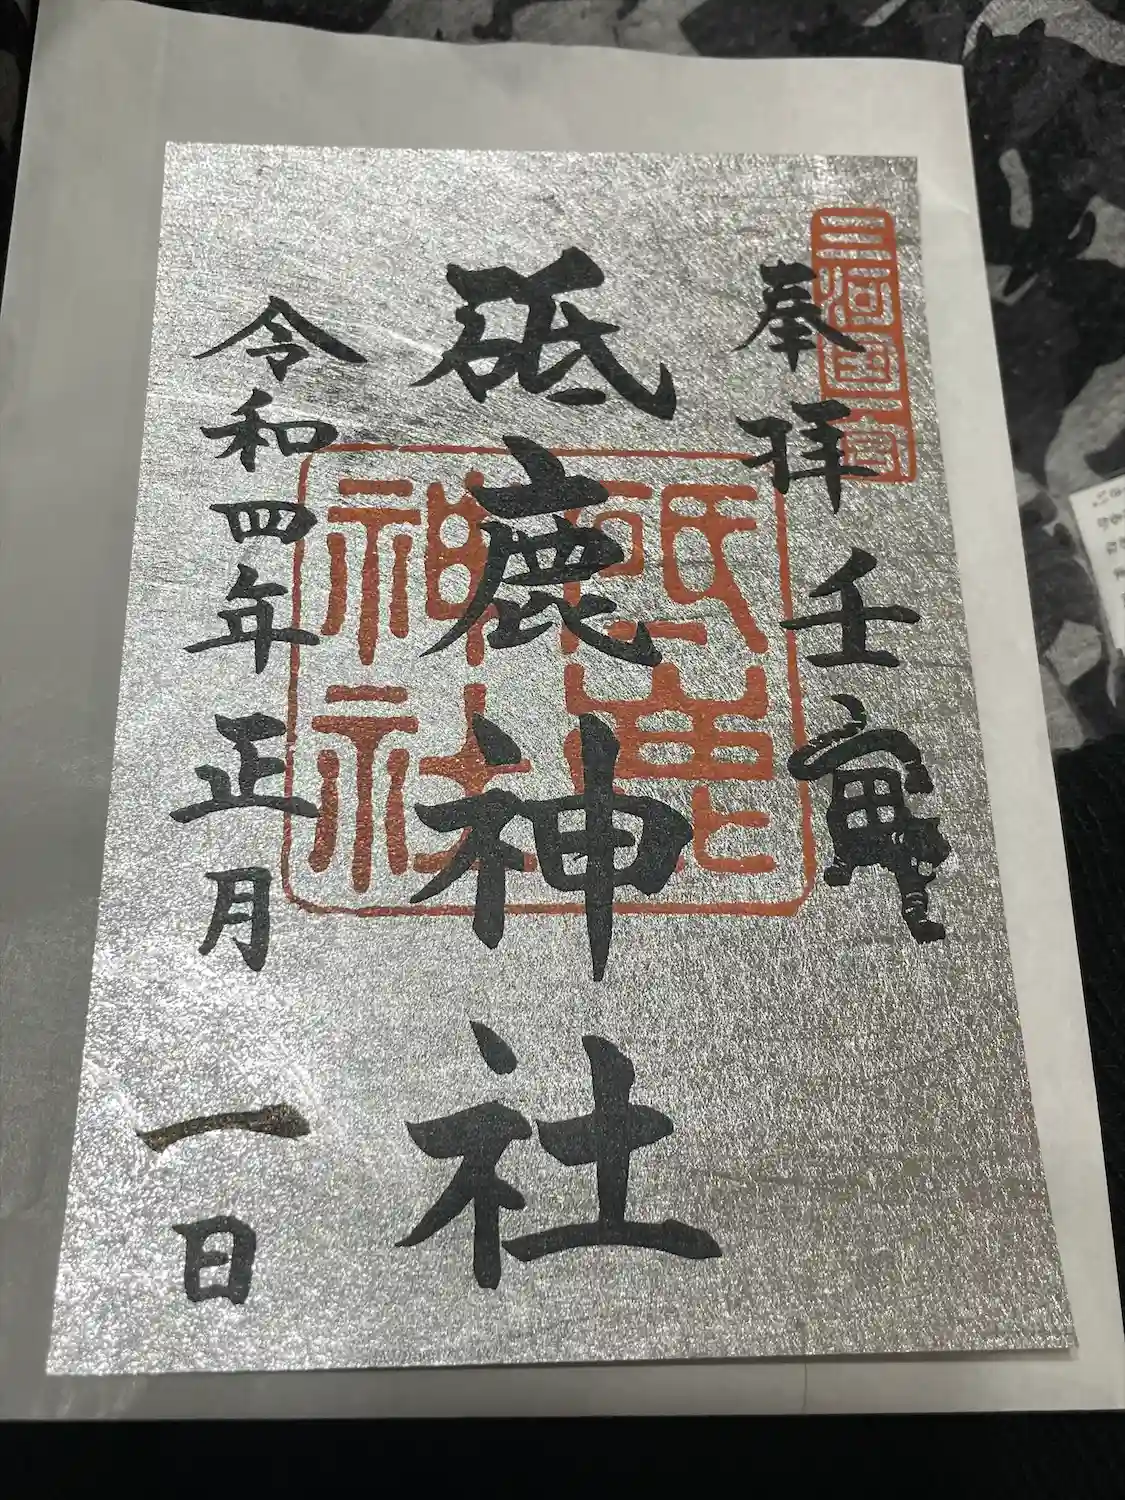 三河國一宮
奉拝 壬寅
砥鹿神社
砥鹿神社
令和四年正月一日